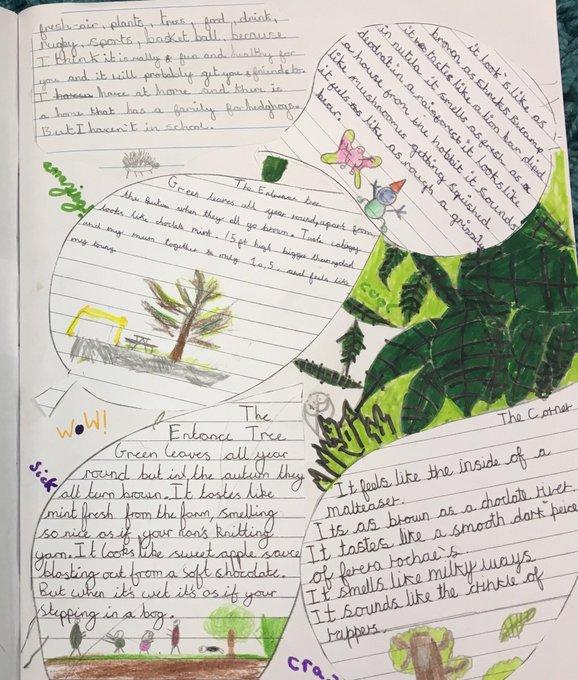 fresh-air, plants, trees, food, drink,
rugby, sports, basket ball, because
I think it is really fun and healthy for
you and it will probably get you friends to
I have at home and there is
a home that has a family for hedgehogs.
But I haven't in school.
it look's like as
brown as shreks swamp
it tastes like a lion bar dived
in nutila it smells as fresh as a
deodrat in a rainforest it looks like
a house from the hobbit it sounds
like mushrooms getting squished
it feels as like as rough a grizzly
bear.
amazing!
The Entrance tree
Green leaves all year round, apart from
the Autun when they all go brown. Taste
looks like choclate mint 15ft high bigger than my dad
and my mum together is only 10,5. and feels like
my
cool
WOW!
Sick
The
Entance Tree
Green leaves all year
round but in the autum they
all turn brown. It tastes like
mint fresh from the farm, smelling
so nice as if your nan's knitting
yarn. It looks like sweet apple sauce
blasting out from a soft shocolate.
But when it's wet it's as if your
stepping in a bog.
The Corner
It feels like the inside of a
malteaser.
Its as brown as a choclate river
It tastes like a smooth dark piece
of ferera rochae's.
It smells like milky ways
It sounds like the crinkle of
rappers.